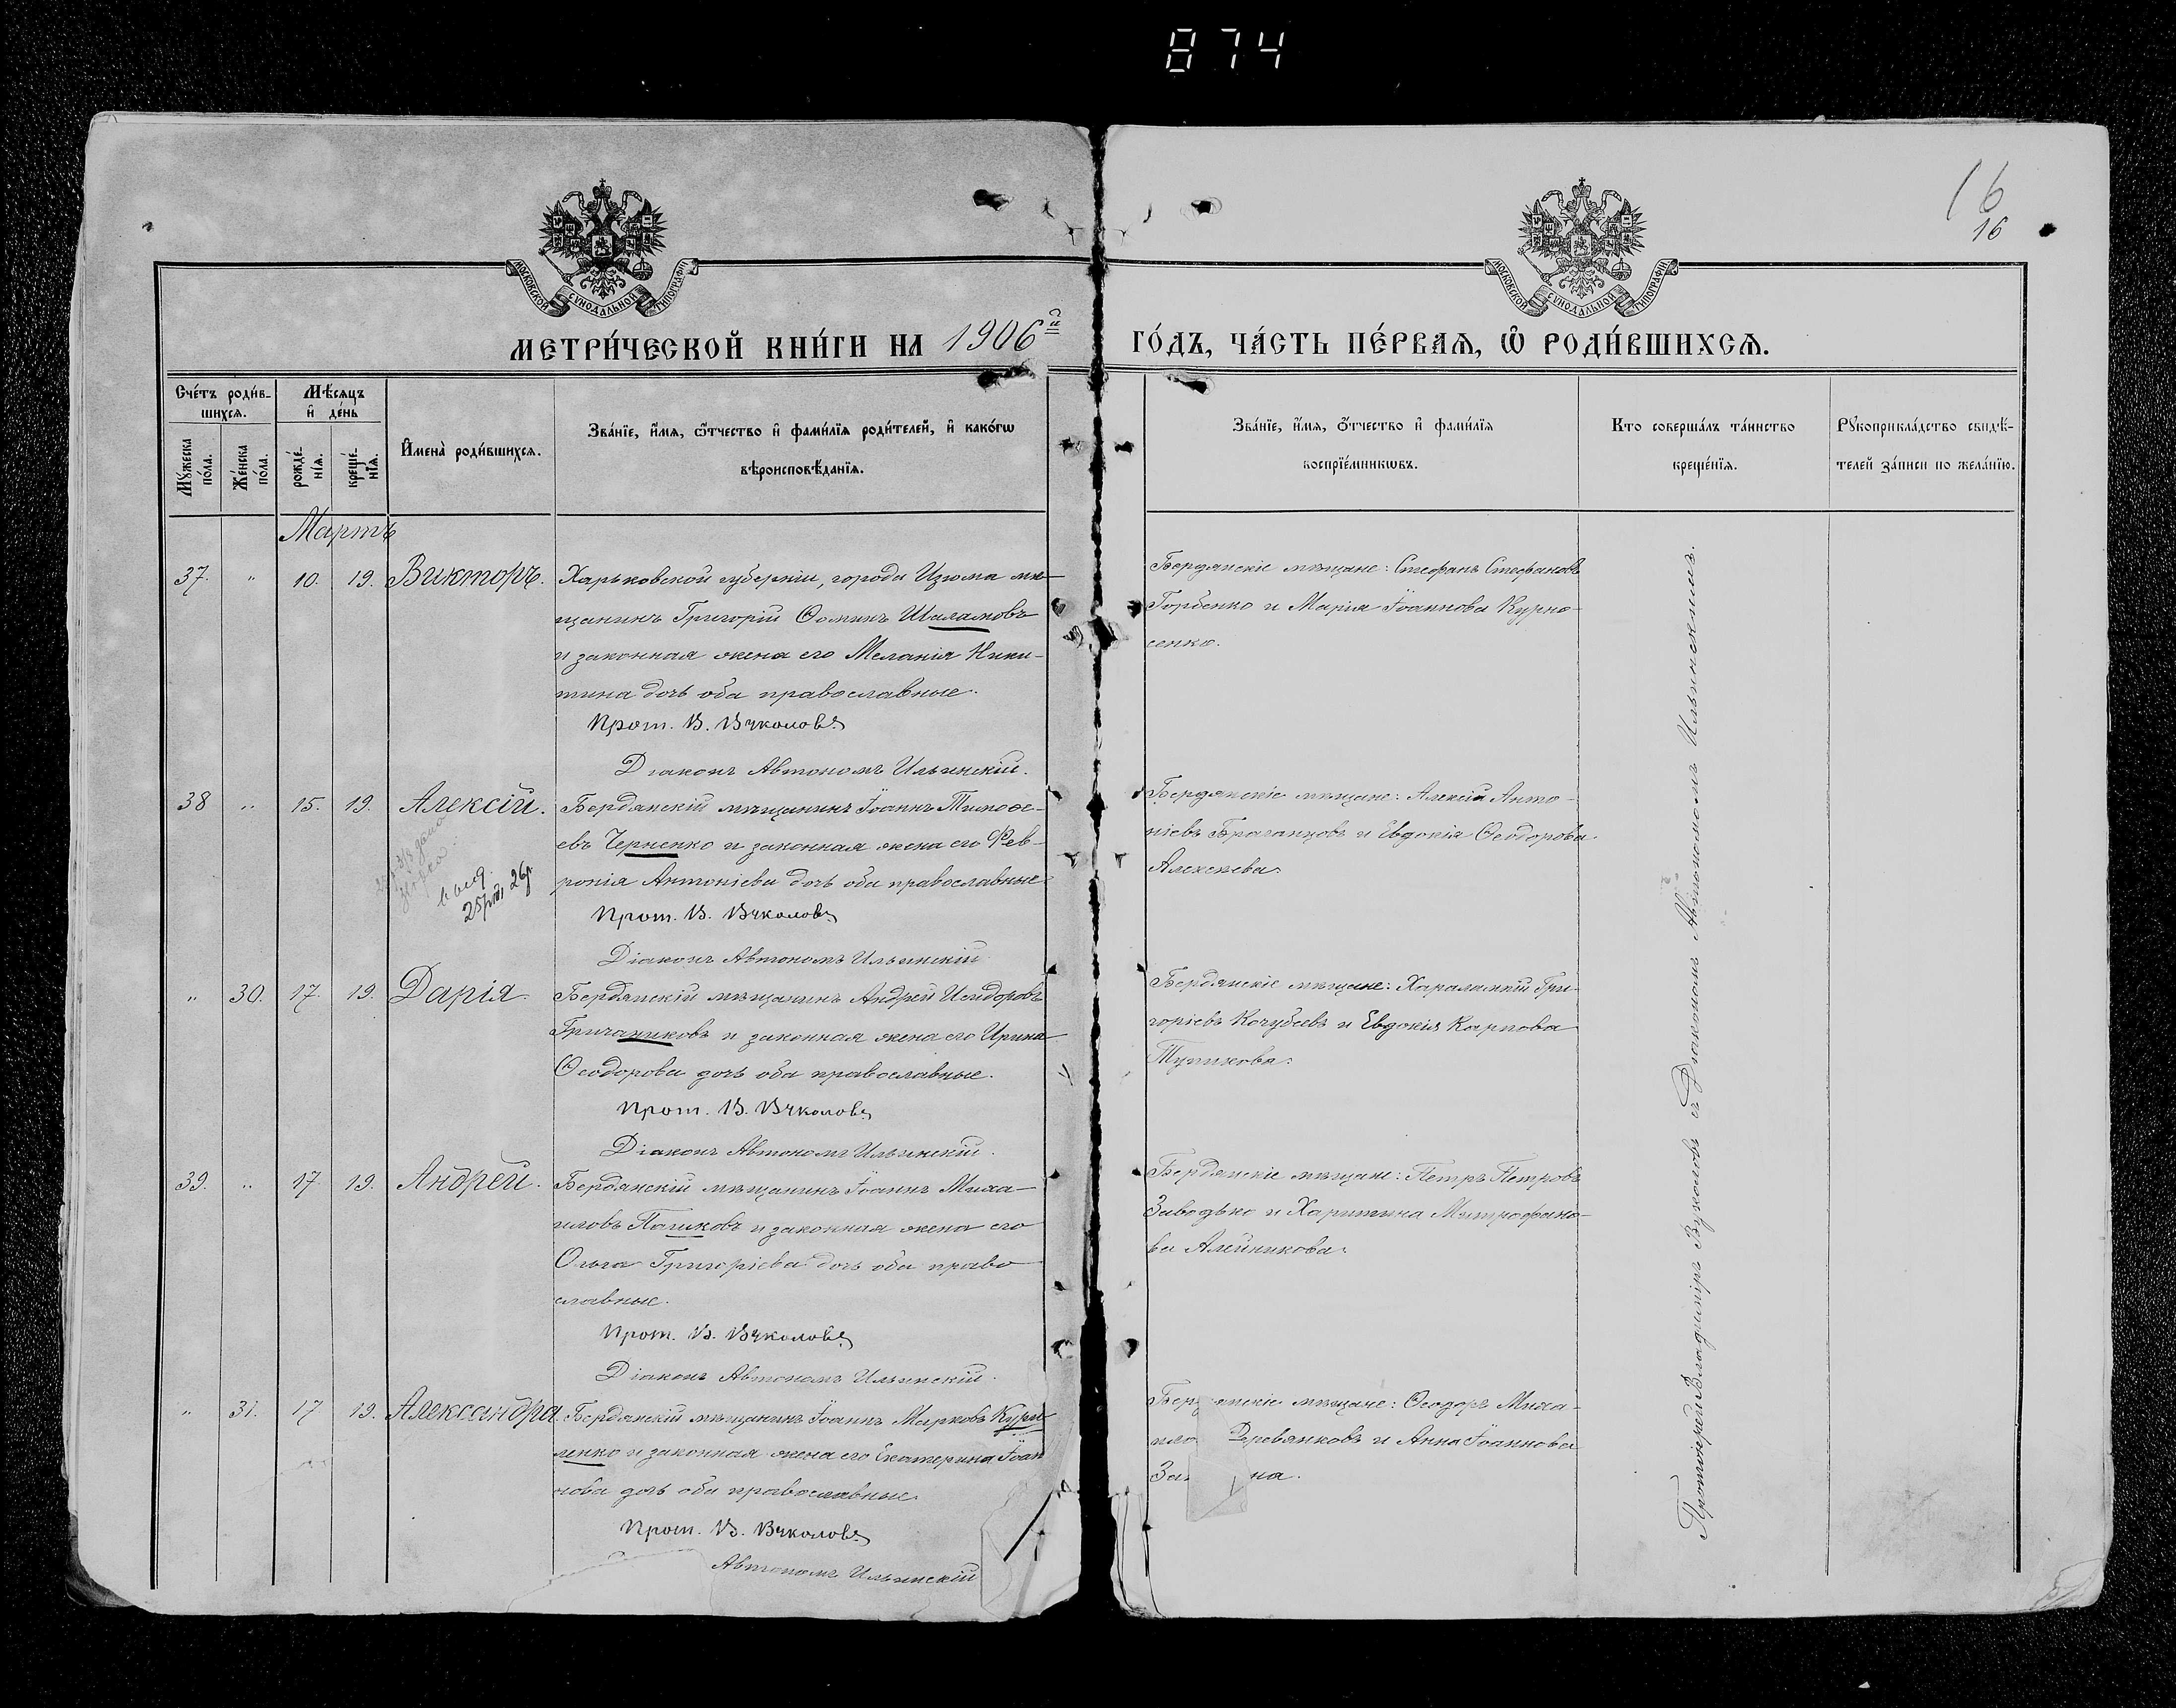 874
16
16
МОСКОВСКОЙ СѴНОДАЛЬНОЙ ТИПОГРАФІИ
МОСКОВСКОЙ СѴНОДАЛЬНОЙ ТИПОГРАФІИ
МЕТРИ́ЧЕСКОЙ КНИ́ГИ НА 1906й ГО́ДЪ, ЧА́СТЬ ПЕ́РВАѦ, Ѽ РОДИ́ВШИХСѦ.
Сче́тъ роди́вшихсѧ.
Мꙋ́жеска по́ла.
Же́нска по́ла.
Мѣ́сѧцъ и҆ де́нь
рожде́нїѧ.
креще́нїѧ.
И҆мена̀ роди́вшихсѧ.
Зва́нїе, и҆́мѧ, ѻ҆́тчество и҆ фами́лїѧ роди́телей, и҆ како́гѡ
вѣроисповѣ́данїѧ.
Зва́нїе, и҆́мѧ, ѻ҆́тчество и҆ фами́лїѧ
воспрїе́мникѡвъ.
Кто соверша́лъ та́инство
креще́нїѧ.
Рꙋкоприкла́дство свидѣ́-
телей за́писи по жела́нїю.
Мартъ
37. " 10. 19. Викторъ.
Харьковской губерніи, города Изюма мѣ-
щанинъ Григорій Ѳоминъ Шаламовъ
и законная жена его Меланія Ники-
тина дочь оба православные.
Прот. В. Вуколовъ
Діаконъ Автономъ Ильинскій.
Бердянскіе мѣщане: Стефанъ Стефановъ
Горбенко и Марія Іоаннова Курно-
сенко.
38 " 15. 19. Алексій.
25 26
Бердянскій мѣщанинъ Іоаннъ Тимоѳе-
евъ Черненко и законная жена его Фев-
ронія Антоніева дочь оба православные.
Прот. В. Вуколовъ
Діаконъ Автономъ Ильинскій
Бердянскіе мѣщане: Алексій Анто-
ніевъ Браганцовъ и Евдокія Ѳеодорова
Алексѣева.
" 30. 17. 19. Дарія.
Бердянскій мѣщанинъ Андрей Исидоровъ
Гричаниковъ и законная жена его Ирина
Ѳеодорова дочь оба православные.
Прот. В. Вуколовъ
Діаконъ Автономъ Ильинскій.
Бердянскіе мѣщане: Харалампій Гри-
горіевъ Кочубеевъ и Евдокія Карпова
Тупикова.
39. " 17 19. Андрей.
Бердянскій мѣщанинъ Іоаннъ Миха-
иловъ Пашковъ и законная жена его
Ольга Григоріева дочь оба право
славные.
Прот. В. Вуколовъ
Діаконъ Автономъ Ильинскій.
Бердянскіе мѣщане: Петръ Петровъ
Заводько и Харитина Митрофано-
ва Алейникова.
" 31. 17 19. Александра.
Бердянскій мѣщанинъ Іоаннъ Марковъ Кури
ленко и законная жена его Екатерина Іоан
нова дочь оба православные.
Прот. В. Вуколовъ
Автономъ Ильинскій
мѣщане: Ѳеодоръ Миха-
Деревянковъ и Анна Іоаннова
Протоіерей Владиміръ Вуколовъ съ Діакономъ Автономомъ Ильинскимъ.